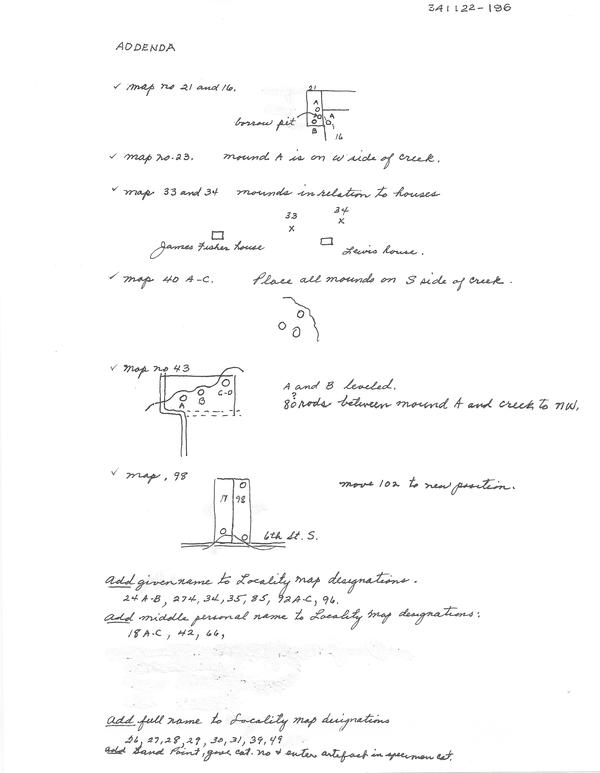 3A1122-196
ADDENDA
✓ map no 21 and 16.
21
A
borrow pit
A
B
16
✓ map no. 23. mound A is on W side of creek.
✓ map 33 and 34 mounds in relation to houses
33 34
x x
James Fisher house Lewis house.
✓ map 40 A-C. Place all mounds on S side of creek.
✓ map no 43
A B C-D
A and B leveled.
?
80 rods between mound A and creek to NW.
✓ map, 98
move 102 to new position.
17 98
6th St. S.
Add given name to Locality map designations.
24 A-B, 274, 34, 35, 85, 92 A-C, 96.
Add middle personal name to Locality map designations:
18 A-C, 42, 66,
Add full name to Locality map designations
26, 27, 28, 29, 30, 31, 39, 49
add Sand Point, give cat. no & enter artefact in specimen cat.